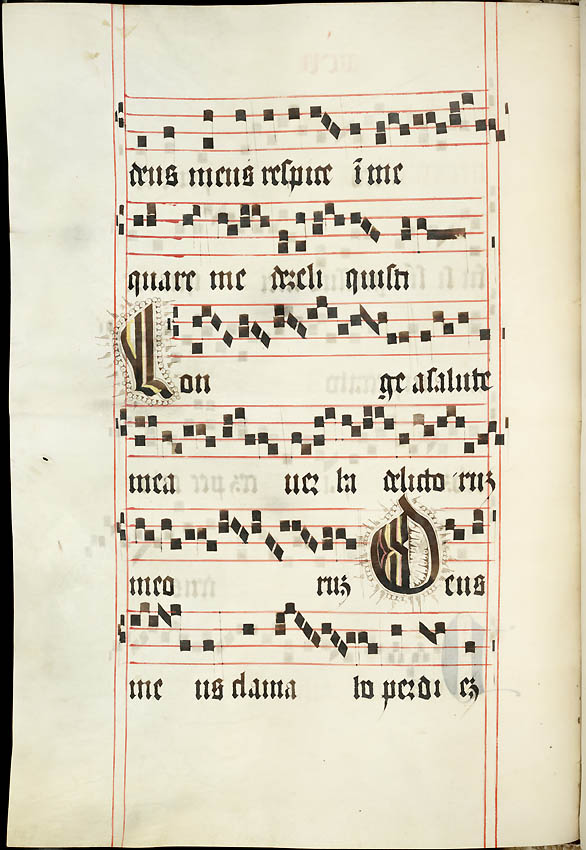 deus meus respice ī me
quare me dereli quisti
Lon ge a salute
mea uer ba delicto ruz
meo ruz Deus
me us clama bo per di ez